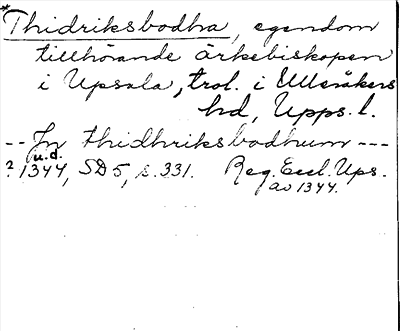 *Thidriksbodha, egendom
tillhörande ärkebiskopen
i Upsala, trol. i Ulleråkers
hd, Upps. l.
-- In thidhriksbodhum ---
u.d.
? 1344, SD 5, s. 331. Reg. Eccl. Ups.
av 1344.